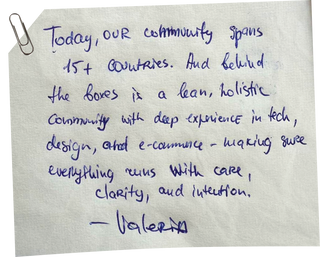 Today, our community spans
15+ countries. And behind
the boxes is a lean, holistic
community with deep experience in tech,
design, and e-commerce - making sure
everything runs with care,
clarity, and intention.
— Valeria